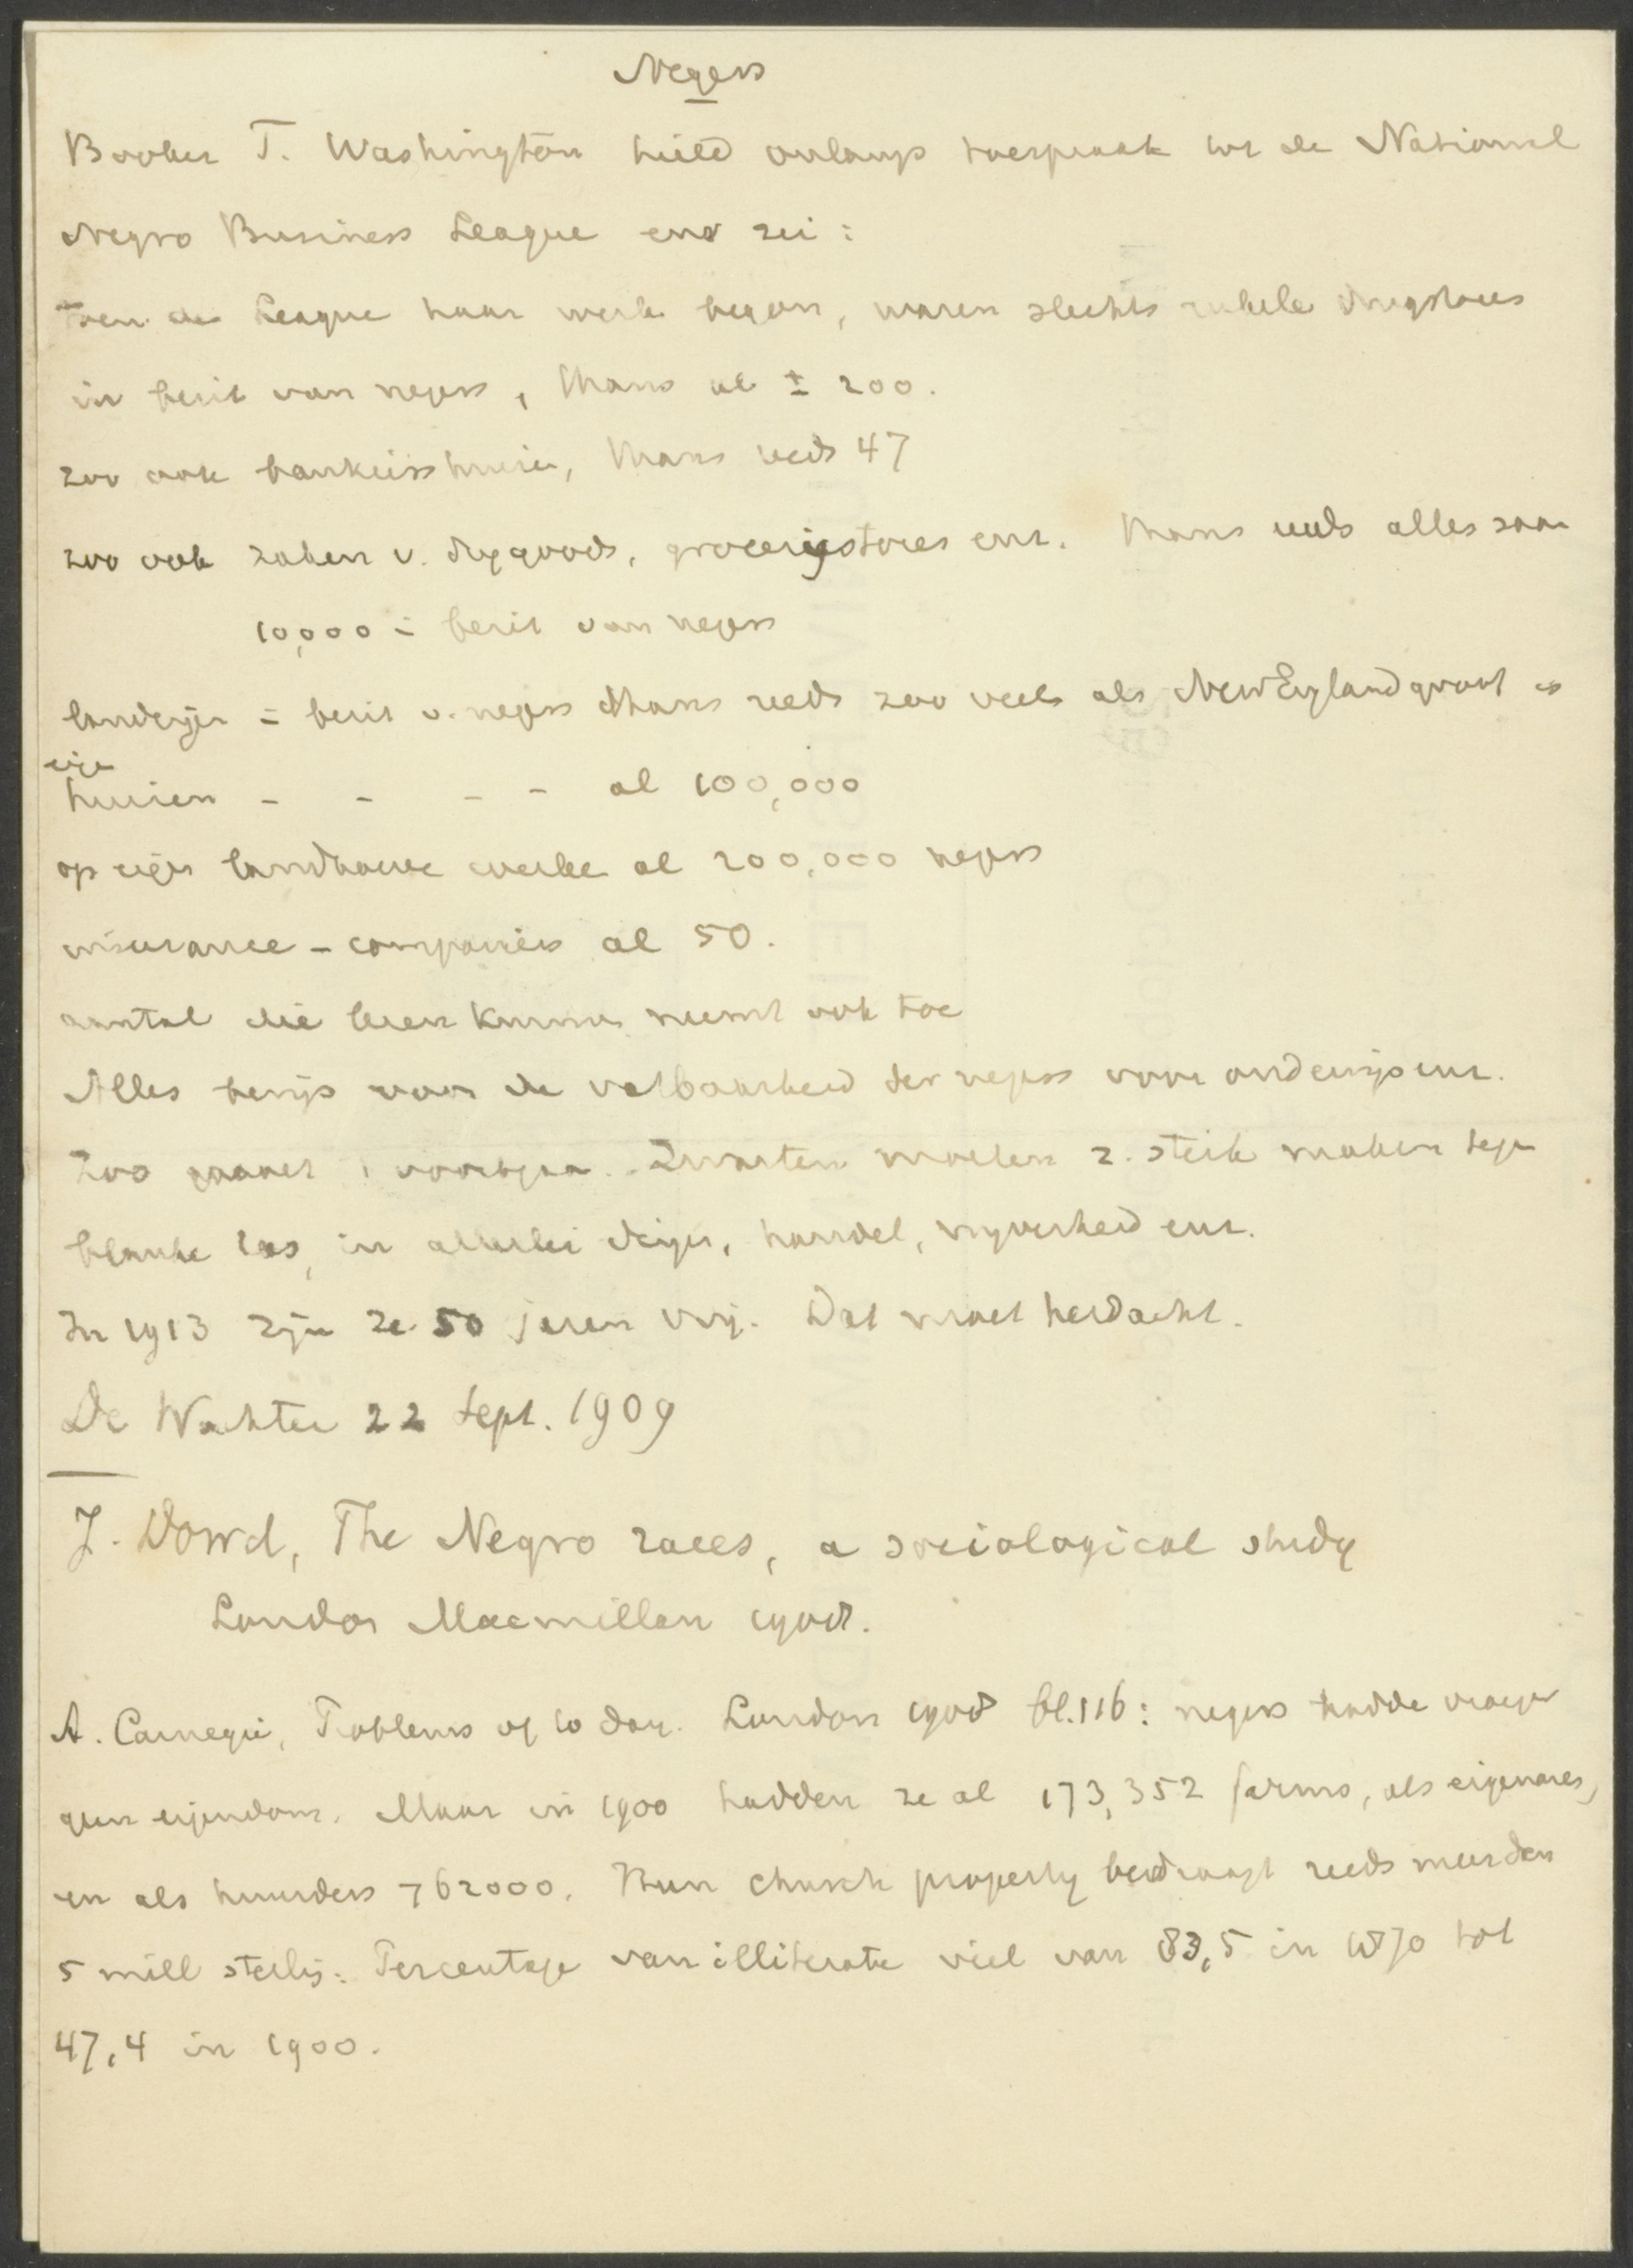 Negers
Booker T. Washington hield onlangs toespraak tot de National
Negro Business League end zei:
Toen de League haar werk begon, waren slechts enkele drugstores
in bezit van negers, thans al ± 200.
zoo ook bankiershuizen, thans reeds 47
zoo ook zaken v. drygoods, grocerystores enz. thans reeds alles saam
10,000 in bezit van negers
landerijen in bezit v. negers thans reeds zoo veel als New England groot is
eigen
huizen - - - - al 100,000
op eigen landhoeve werken al 200,000 negers
insurance-companies al 50.
aantal die lezen kunnen neemt ook toe
Alles bewijs voor de vatbaarheid der negers voor onderwijs enz.
Zoo gaan er vooruit. Zwarten moeten z. sterk maken tegen
blanke ras, in allerlei dingen, handel, nijverheid enz.
In 1913 zijn ze 50 jaren vrij. Dat moet herdacht.
De Wachter 22 Sept. 1909
J. Dowd, The Negro races, a sociological study
London Macmillan 1908.
A. Carnegie, Problems of to day. London 1908 bl. 116: negers hadden vroeger
geen eigendom. Maar in 1900 hadden ze al 173,352 farms, als eigenares,
en als huurders 762000. Hun church property bedraagt reeds meer dan
5 mill sterling. Percentage van illiterate viel van 83,5 in 1870 tot
47,4 in 1900.